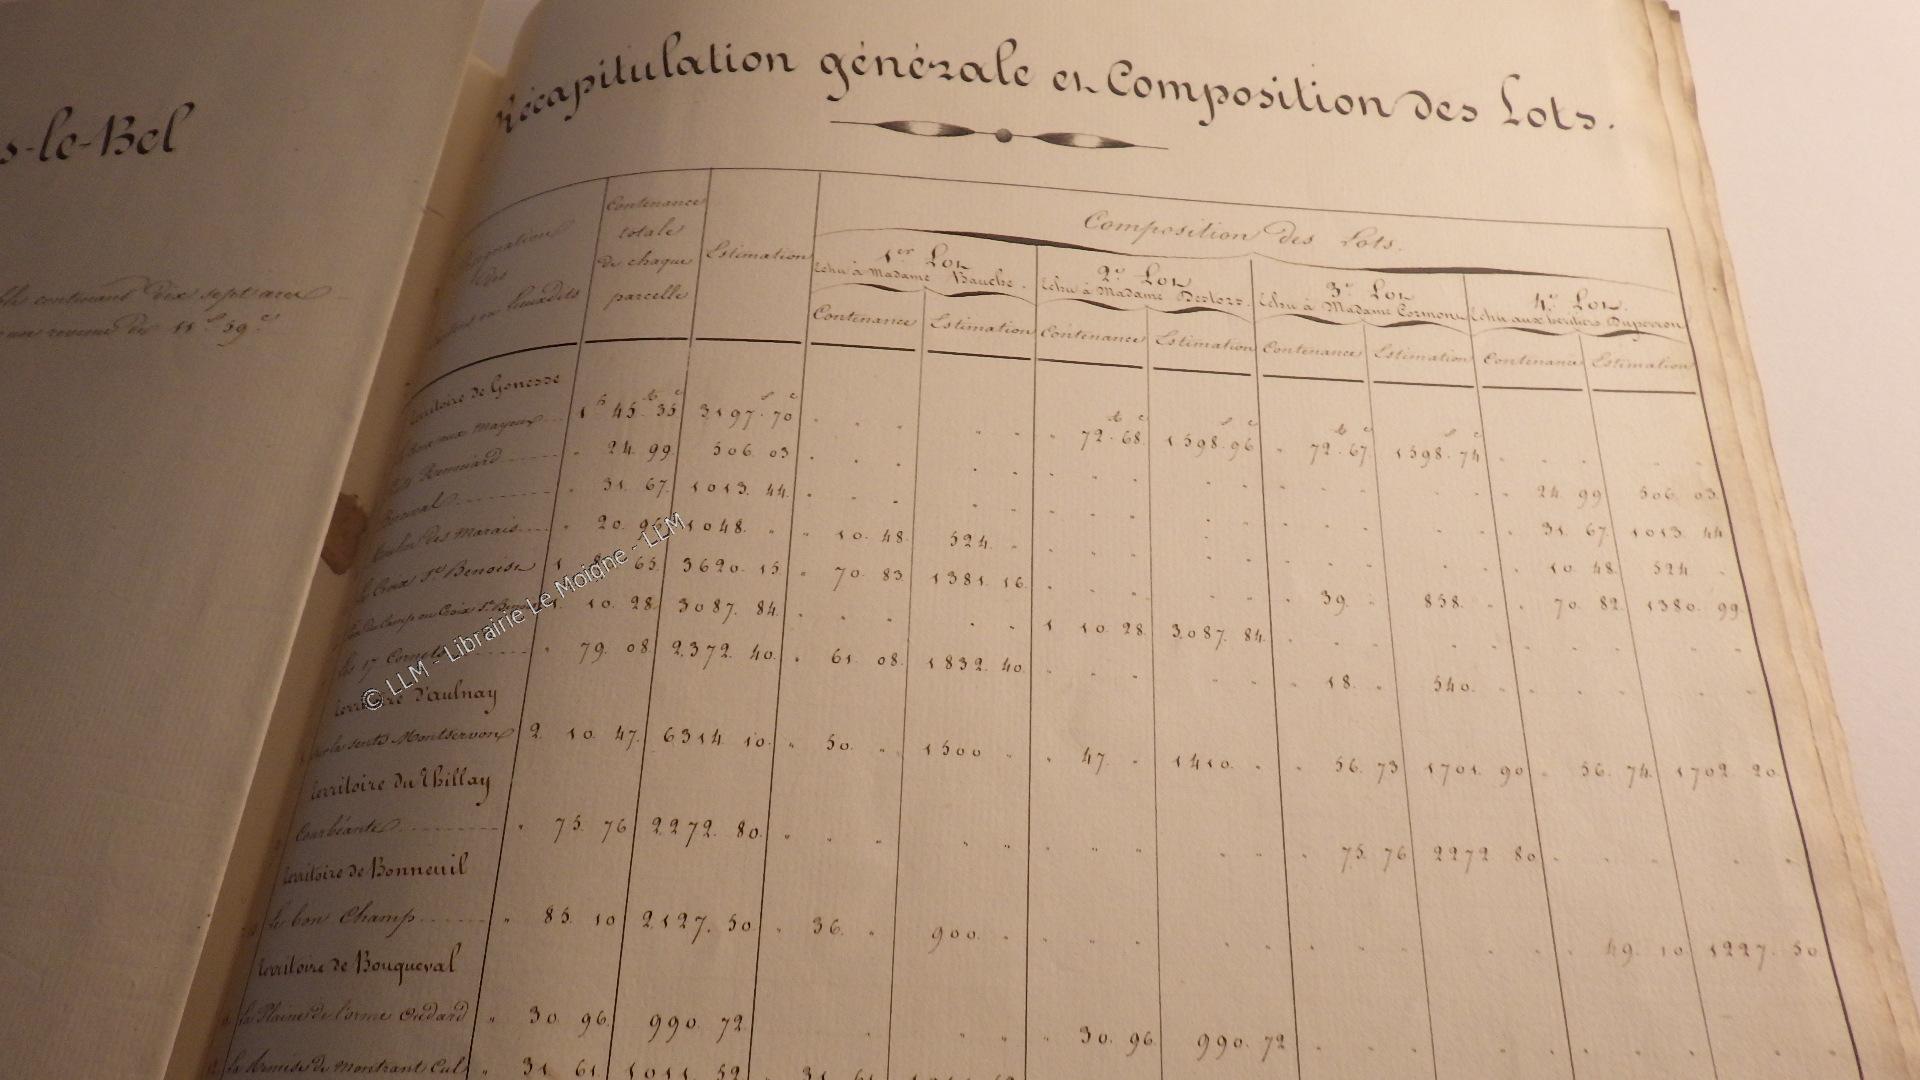 s-le-Bel
contenant dix sept ares
un revenu de 11 f 59 c
Récapitulation générale et Composition des Lots.
Désignation
des
Contenance
totale
de chaque
parcelle
Estimation
Composition des Lots.
1er Lot
Echu à Madame Bauche.
2e Lot
Echu à Madame Deslors.
3e Lot
Echu à Madame Cormon
4e Lot.
Echu aux héritiers Duperron
Contenance Estimation Contenance Estimation Contenance Estimation Contenance Estimation
Territoire de Gonesse
aux Mayeux 1 h 45 a 35 c 3197 f 70 c 72 a 68 c 1598 f 96 c 72 a 67 c 1598 f 74 c
24 99 506 03 24 99 506 03
31 67 1013 44 31 67 1013 44
des Marais 20 96 1048 10 48 524 10 48 524
la Croix St Benoist 1 65 3620 15 70 83 1381 16 39 858 70 82 1380 99
ou Croix St 1 10 28 3087 84 1 10 28 3087 84
les 17 Cornets 79 08 2372 40 61 08 1832 40 18 540
Territoire d'aulnay
la sente Montservon 2 10 47 6314 10 50 1500 47 1410 56 73 1701 90 56 74 1702 20
Territoire du Thillay
Courbéante 75 76 2272 80 75 76 2272 80
Territoire de Bonneuil
le bon Champ 85 10 2127 50 36 900 49 10 1227 50
Territoire de Bouqueval
la Plaine de l'orme Oudard 30 96 990 72 30 96 990 72
la Remise de Montrant Cul 31 61 1011 52 31 61
© LLM - Librairie Le Moigne - LLM